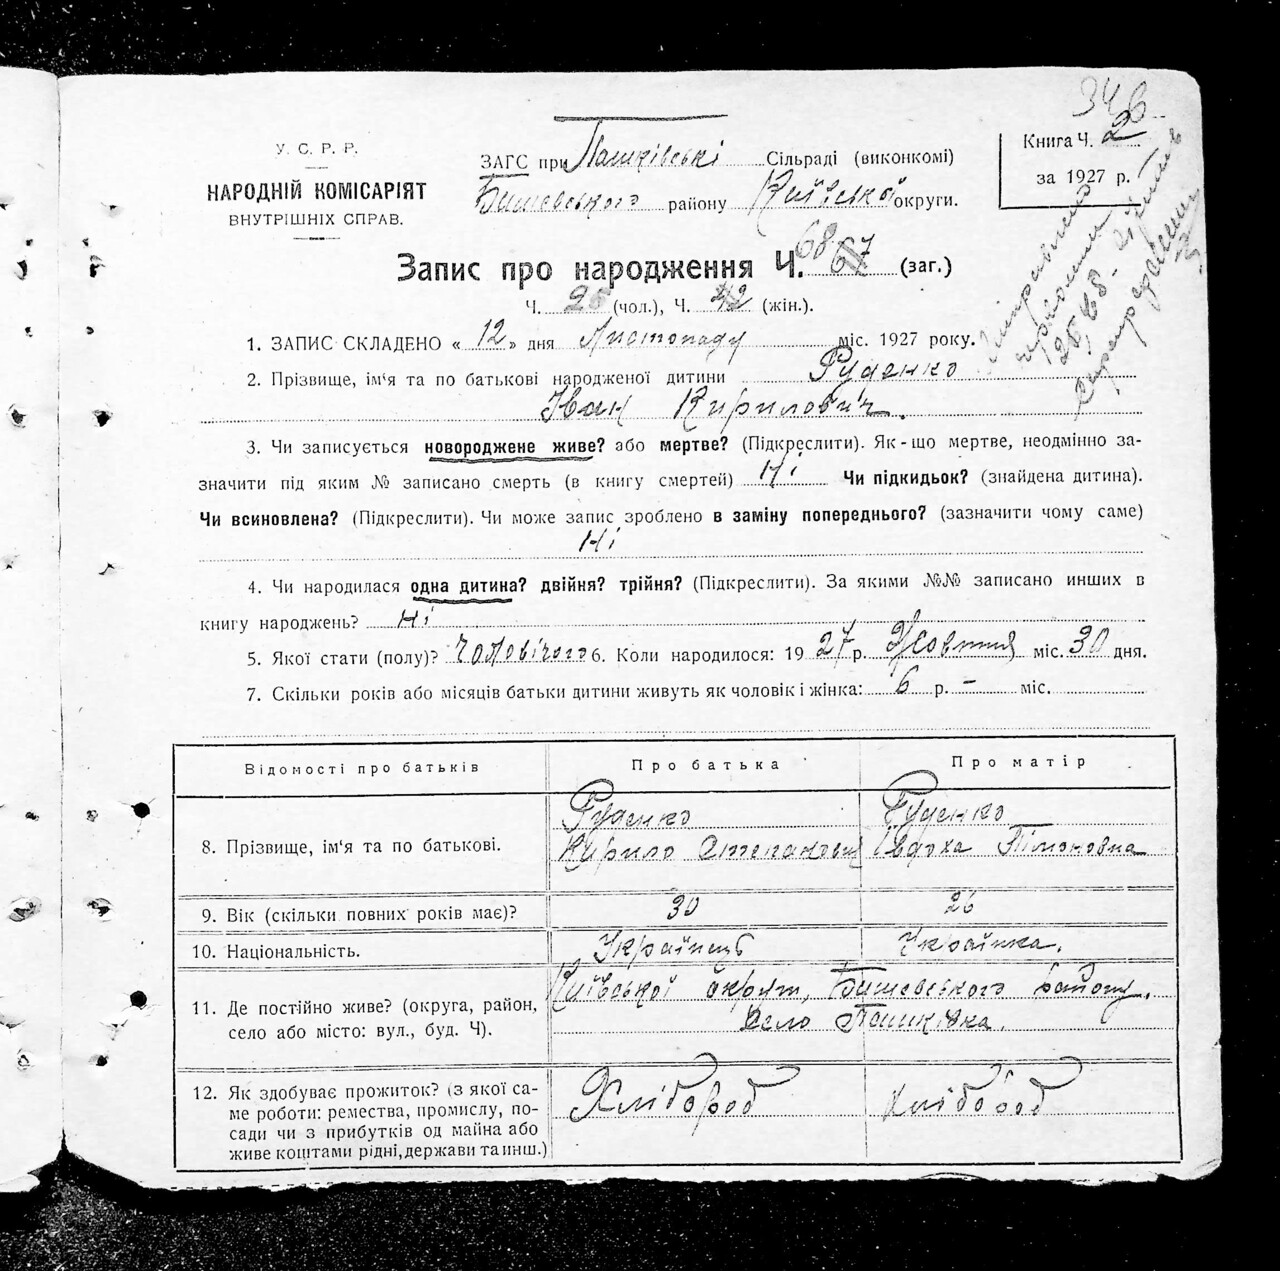 346
У. С. Р. Р.
НАРОДНІЙ КОМІСАРІЯТ
ВНУТРІШНІХ СПРАВ.
ЗАГС при Пашківські Сільраді (виконкомі)
Бишевського району Київської округи.
Книга Ч. 2
за 1927 р.
Запис про народження Ч. 68 67 (заг.)
Ч. 25 (чол.), Ч. 42 (жін.).
1. ЗАПИС СКЛАДЕНО « 12 » дня Листопаду міс. 1927 року.
2. Прізвище, ім'я та по батькові народженої дитини Руденко
Іван Кирилович.
3. Чи записується новороджене живе? або мертве? (Підкреслити). Як-що мертве, неодмінно за-
значити під яким № записано смерть (в книгу смертей) Ні Чи підкидьок? (знайдена дитина).
Чи всиновлена? (Підкреслити). Чи може запис зроблено в заміну попереднього? (зазначити чому саме)
Ні
4. Чи народилася одна дитина? двійня? трійня? (Підкреслити). За якими №№ записано инших в
книгу народжень? Ні
5. Якої стати (полу)? Чоловічого 6. Коли народилося: 1927 р. Жовтня міс. 30 дня.
7. Скільки років або місяців батьки дитини живуть як чоловік і жінка: 6 р. – міс.
Відомості про батьків Про батька Про матір
8. Прізвище, ім'я та по батькові. Руденко Кирило Степанович Руденко Євдоха Тімоновна
9. Вік (скільки повних років має)? 30 26
10. Національність. Українець Українка.
11. Де постійно живе? (округа, район, Київської округи, Бишевського району.
село або місто: вул., буд. Ч). Село Пашківка.
12. Як здобуває прожиток? (з якої са- Хлібороб Хлібороб
ме роботи: ремества, промислу, по-
сади чи з прибутків од майна або
живе коштами рідні, держави та инш.)